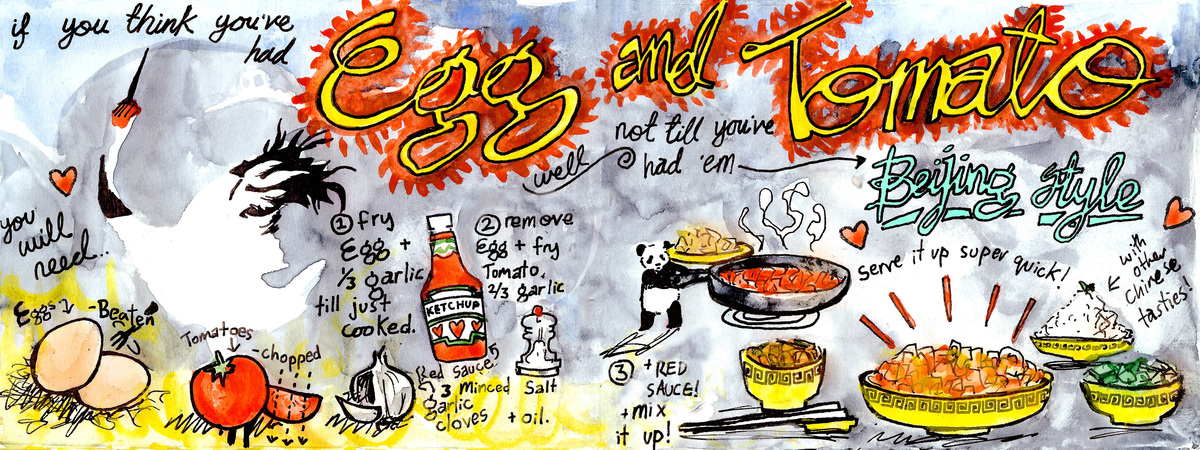 if you think you've
had
Egg and Tomato
well
not till you've
had 'em
Beijing Style
you
will
need..
Eggs
-Beaten
Tomatoes
-chopped
① fry
Egg +
⅓ garlic
till just
cooked.
KETCHUP
Red Sauce
3 minced
garlic
cloves
② remove
Egg + fry
Tomato,
2/3 garlic
Salt
+ oil.
③ +RED
SAUCE!
+mix
it up!
serve it up super quick!
with
other
chinese
tasties!